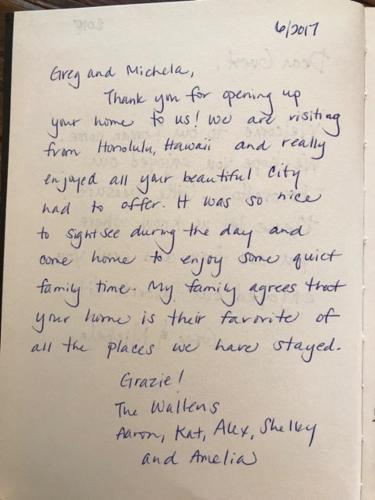 6/2017
Greg and Michela,
Thank you for opening up
your home to us! We are visiting
from Honolulu, Hawaii and really
enjoyed all your beautiful city
had to offer. It was so nice
to sightsee during the day and
come home to enjoy some quiet
family time. My family agrees that
your home is their favorite of
all the places we have stayed.
Grazie!
The Wallens
Aaron, Kat, Alex, Shelley
and Amelia